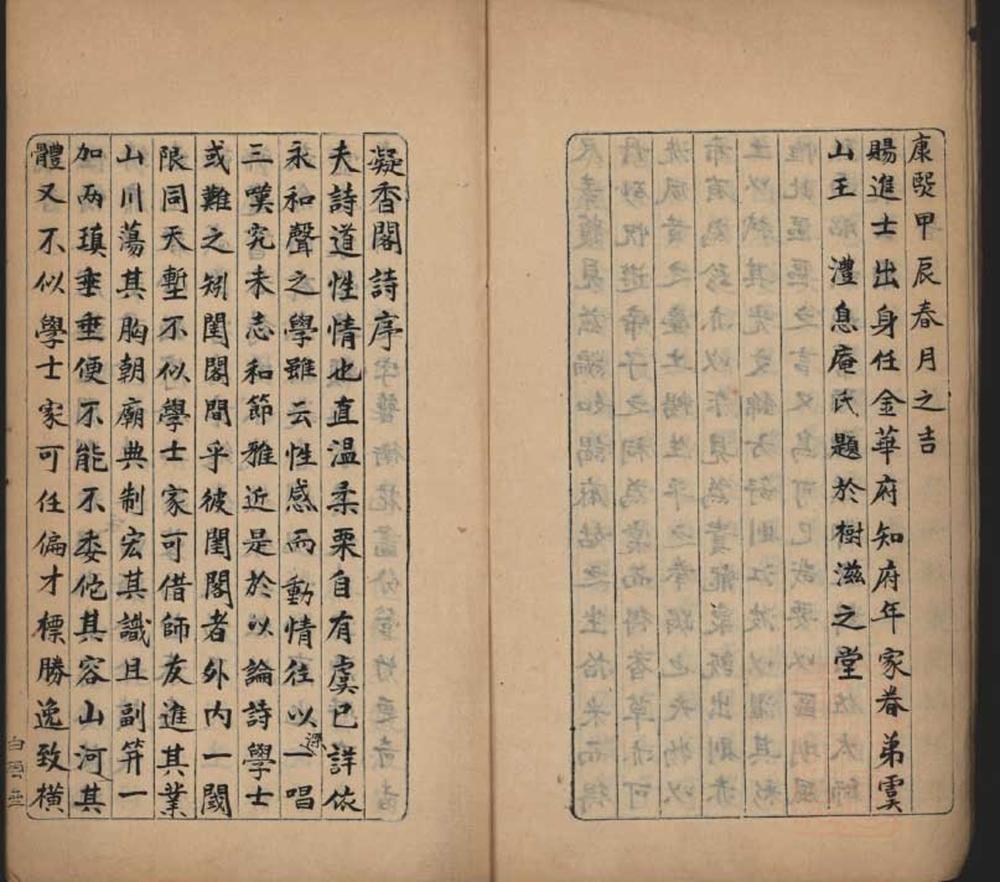 康熙甲辰春月之吉
賜進士出身任金華府知府年家眷弟雲
山王澧息庵氏題於樹滋之堂
凝香閣詩序
夫詩道性情也直溫柔栗自有虞已詳依
永和聲之學雖云性感而動情往以一唱
深
三嘆究未志和節雅近是於以論詩學士
或難之矧閨閣間乎彼閨閣者外內一閾
限同天塹不似學士家可借師友進其業
山川蕩其胸朝廟典制宏其識且副笄一
加兩瑱垂垂便不能不委佗其容山河其
體又不似學士家可任偏才標勝逸致橫